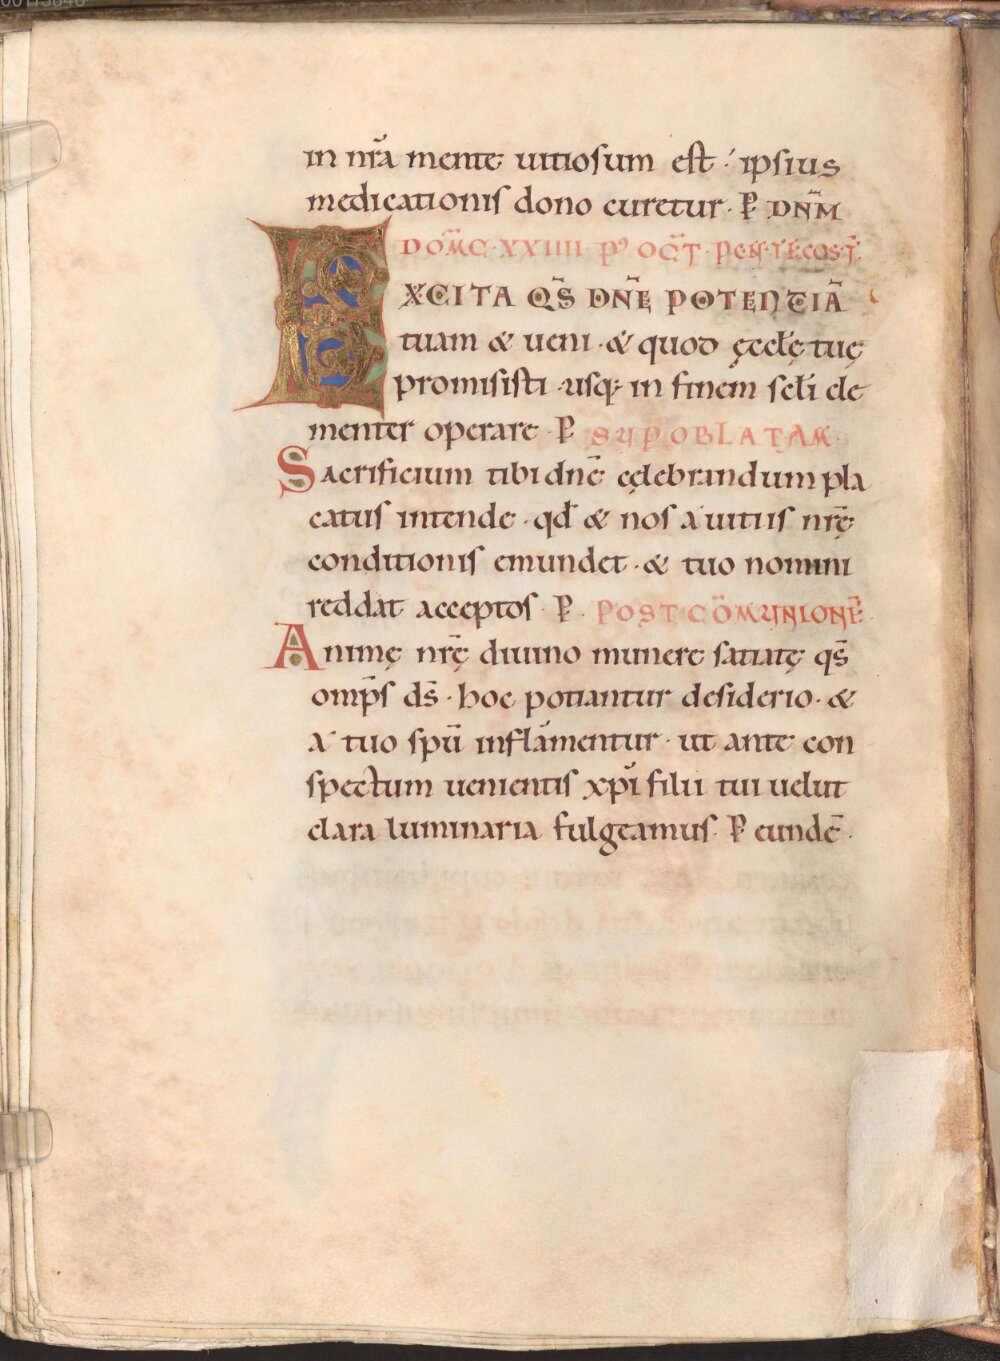 in nr̃a mente uitiosum est ipsius
medicationis dono curetur · P DÑM
DOM̃C · XXIIII P' OC̃T · PENTECOST̃
EXCITA QS̃ DÑE POTENTIÃ
tuam & ueni · & quod ęcclę tuę
promisisti · usq; in finem sc̄li cle
menter operare · P SUP OBLATAM ·
Sacrificium tibi dnē cęlebrandum pla
catus intende · qd̄ & nos a uitiis nrę̄
conditionis emundet · & tuo nomini
reddat acceptos · P · POST COM̄UNIONĒ
Animę nrę̄ diuino munere satiatę qs̄
omp̄s ds̄ · hoc potiantur desiderio · &
a tuo spū inflámentur · ut ante con
spectum uenientis xp̄i filii tui uelut
clara luminaria fulgeamus · P eundē ·